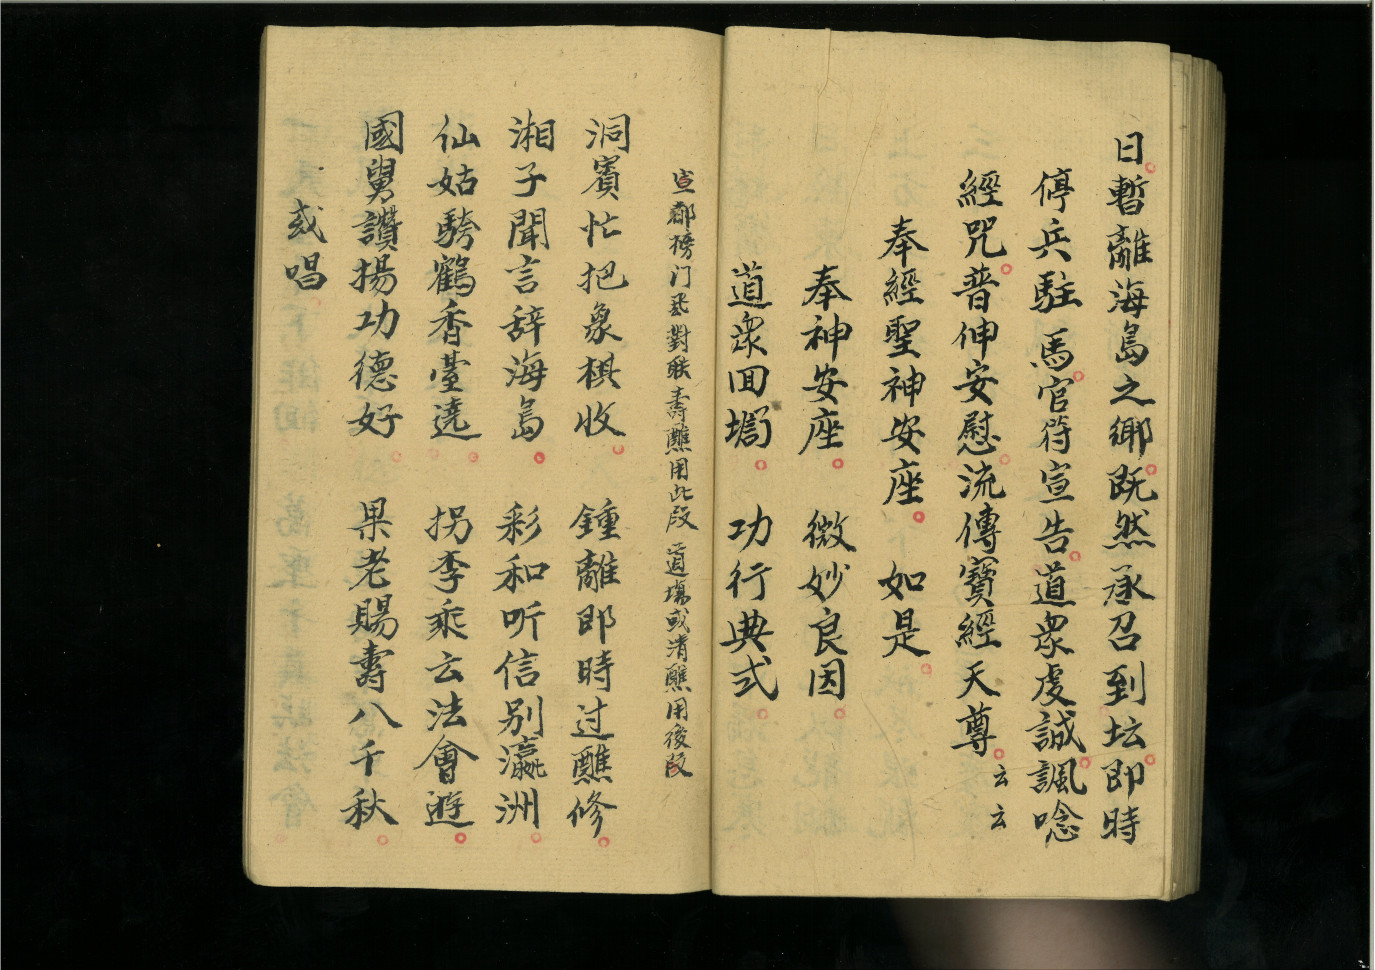 日暫離海島之鄉既然承召到坛即時
停兵駐馬官符宣告道眾虔誠諷唸
經咒普伸安慰流傳寶經天尊云云
奉經聖神安座 如是
奉神安座 微妙良因
道眾囬壇 功行典式
宣都榜门丞對联壽醮用此段 道場或清醮用後段
洞賓忙把象棋收 鍾離即時过醮修
湘子聞言辞海島 彩和听信别瀛洲
仙姑騎鶴香臺遶 拐李乘云法會遊
國舅讚揚功德好 果老賜壽八千秋
或唱